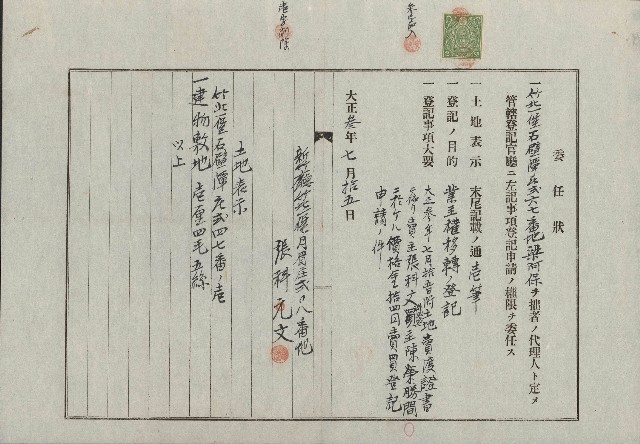 委任狀
一竹北一堡石壁潭庄弐六七番地梁阿保ヲ拙者ノ代理人ト定メ
管轄登記官廳ニ左記事項登記申請ノ權限ヲ委任ス
一土地表示 末尾記載ノ通壱筆
一登記ノ目的 業主權移轉ノ登記
一登記事項大要 大正参年七月拾五日附土地賣渡證書
ニ依リ賣主張科文買主陳榮勝間
ニ於ケル價格金拾四円賣買登記
申請ノ件
大正参年七月拾五日
新竹廳竹北一堡月眉庄弐〇八番地
張科元文
土地表示
竹北一堡石壁潭庄弐四七番ノ壱
一建物敷地 壱厘四毛五絲
以上